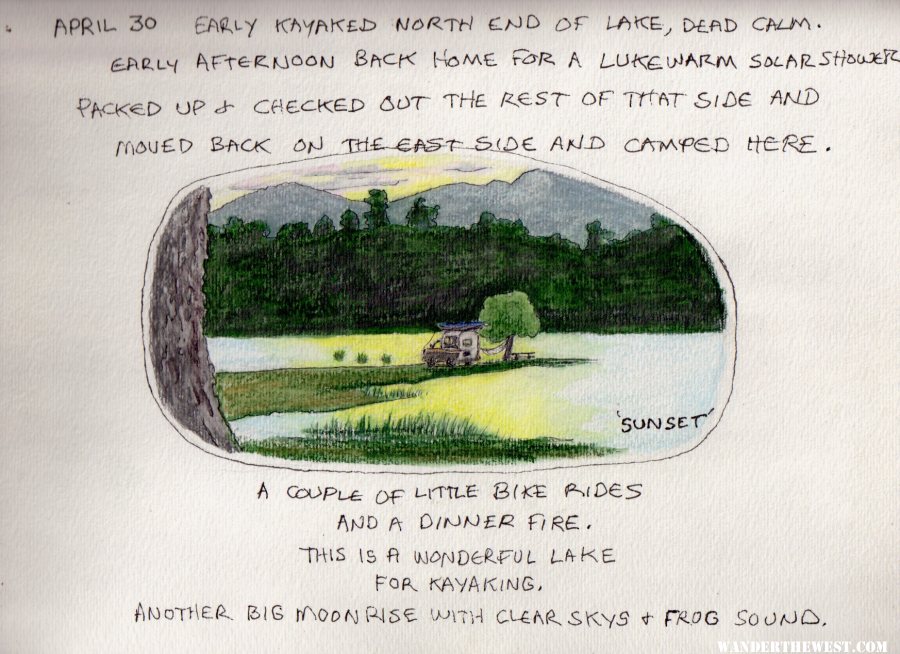 APRIL 30 EARLY KAYAKED NORTH END OF LAKE, DEAD CALM.
EARLY AFTERNOON BACK HOME FOR A LUKEWARM SOLAR SHOWER
PACKED UP & CHECKED OUT THE REST OF THAT SIDE AND
MOVED BACK ON THE EAST SIDE AND CAMPED HERE.
'SUNSET'
A COUPLE OF LITTLE BIKE RIDES
AND A DINNER FIRE.
THIS IS A WONDERFUL LAKE
FOR KAYAKING.
ANOTHER BIG MOONRISE WITH CLEAR SKYS & FROG SOUND.
WANDERTHEWEST.COM